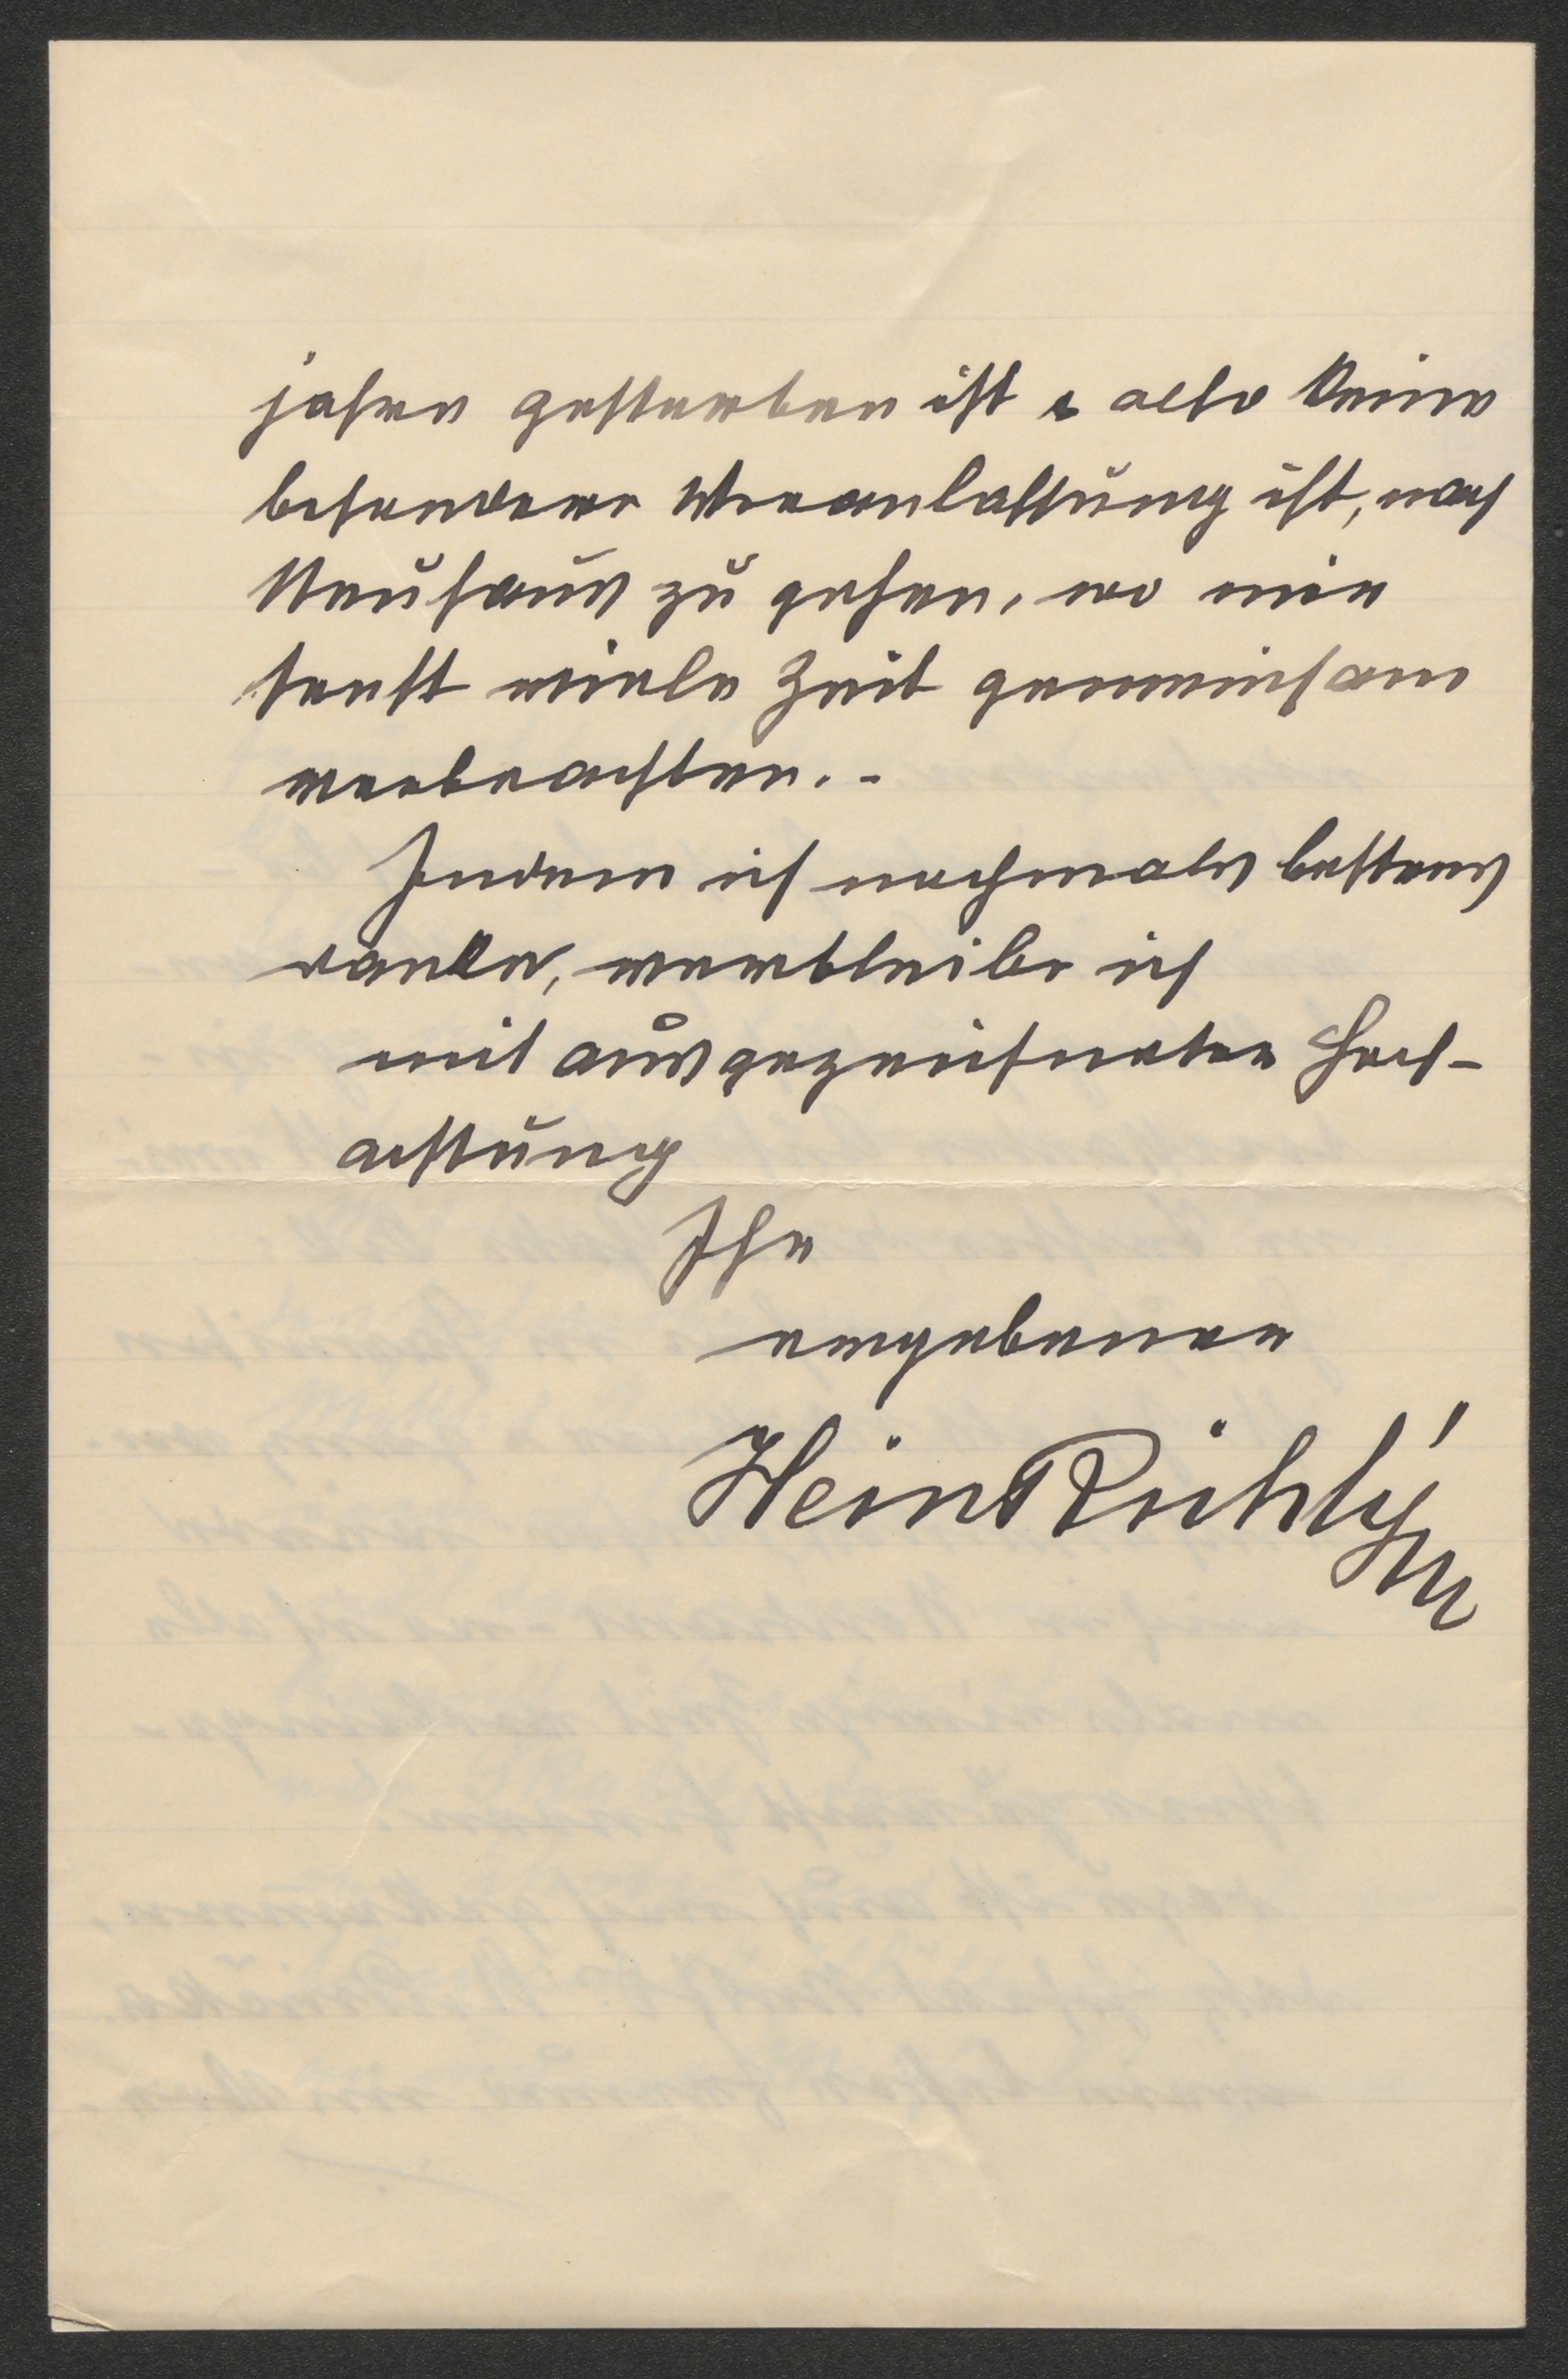 jahren gestorben ist & also keine
besondere Veranlassung ist, nach
Neuhaus zu gehen, wo wir
sonst viele Zeit gemeinsam
verbrachten. -
Indem ich nochmals bestens
danke, verbleibe ich
mit ausgezeichneter Hoch-
achtung
Ihr
ergebener